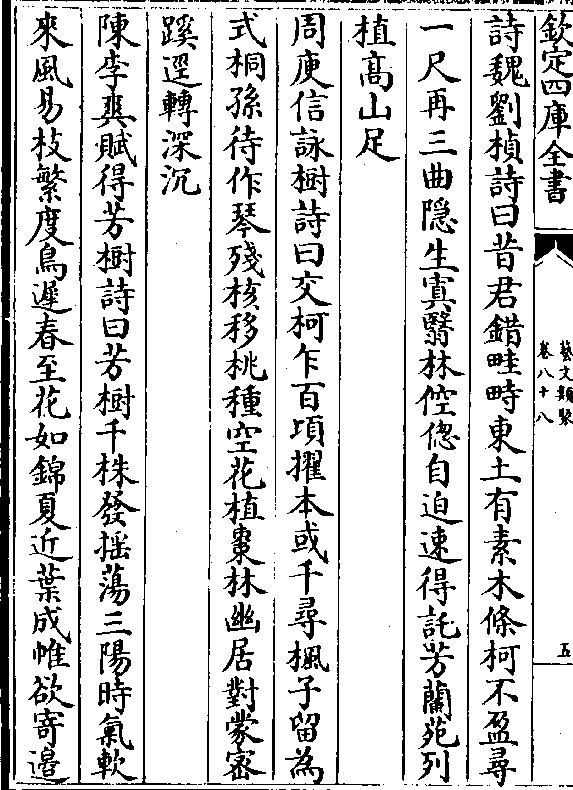 欽定四庫全書
藝文類聚
卷八十八
五
詩魏劉楨詩曰昔君錯畦畤東土有素木條柯不盈尋
一尺再三曲隐生寘翳林倥偬自迫速得託芳蘭苑列
植髙山足
周庾信詠樹詩曰交柯乍百頃擢本或千尋楓子留為
式桐孫待作琴殘核移桃種空花植棗林幽居對蒙宻
蹊逕轉深沉
陳李爽賦得芳樹詩曰芳樹千株發揺蕩三陽時氣軟
來風易枝繁度鳥遲春至花如錦夏近葉成帷欲寄邉